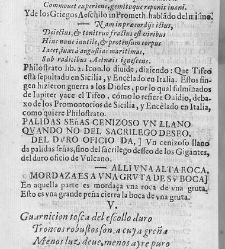 Commouit cuperiem, gemitoque reponit inani.
Y de los Griegos Aeschilo in Prometh. hablādo del
—Nam in præcordijs ictus,
Deiectus, & tonitruo fractus est viribus
Hinc nunc inutile, & protensum corpus
Iacet, iuxta angustias maritimas.
Sub radicibus Aetnais ignescens.
Philostrato lib. 2. Icon. lo diuide, diziendo: Que Tifeo
esta sepultado en Sicilia, y Encelado en Italia. Estos fin-
gen hizieron guerra a los Dioses, por lo qual fulminados
de Iupiter yace el Tifeo, como lo refiere Ouidio, deba-
xo de los Promontorios de Sicilia, y Encelado en Italia, como
quiere Philostrato.
PALIDAS SEÑAS CENIZOSO VN LLANO
QVANDO NO DEL SACRILEGO DESEO.
DEL DVRO OFICIO DA,] Vn cenizoso llano
da palidas señas, sino del sacrilego deseo de los Gigantes,
del duro oficio de Vulcano.
—ALLI VNA ALTA ROCA,
MORDAZA ES A VNA GRVTA DE SV BOCA]
En aquella parte es mordaça vna roca de vna gruta,
Esto es vna grande peña cierra la boca de vna gruta.
V.
Guarnicion tosca del escollo duro
Troncos robustos son, a cuya greña
Menos luz deue, menos ayre puro